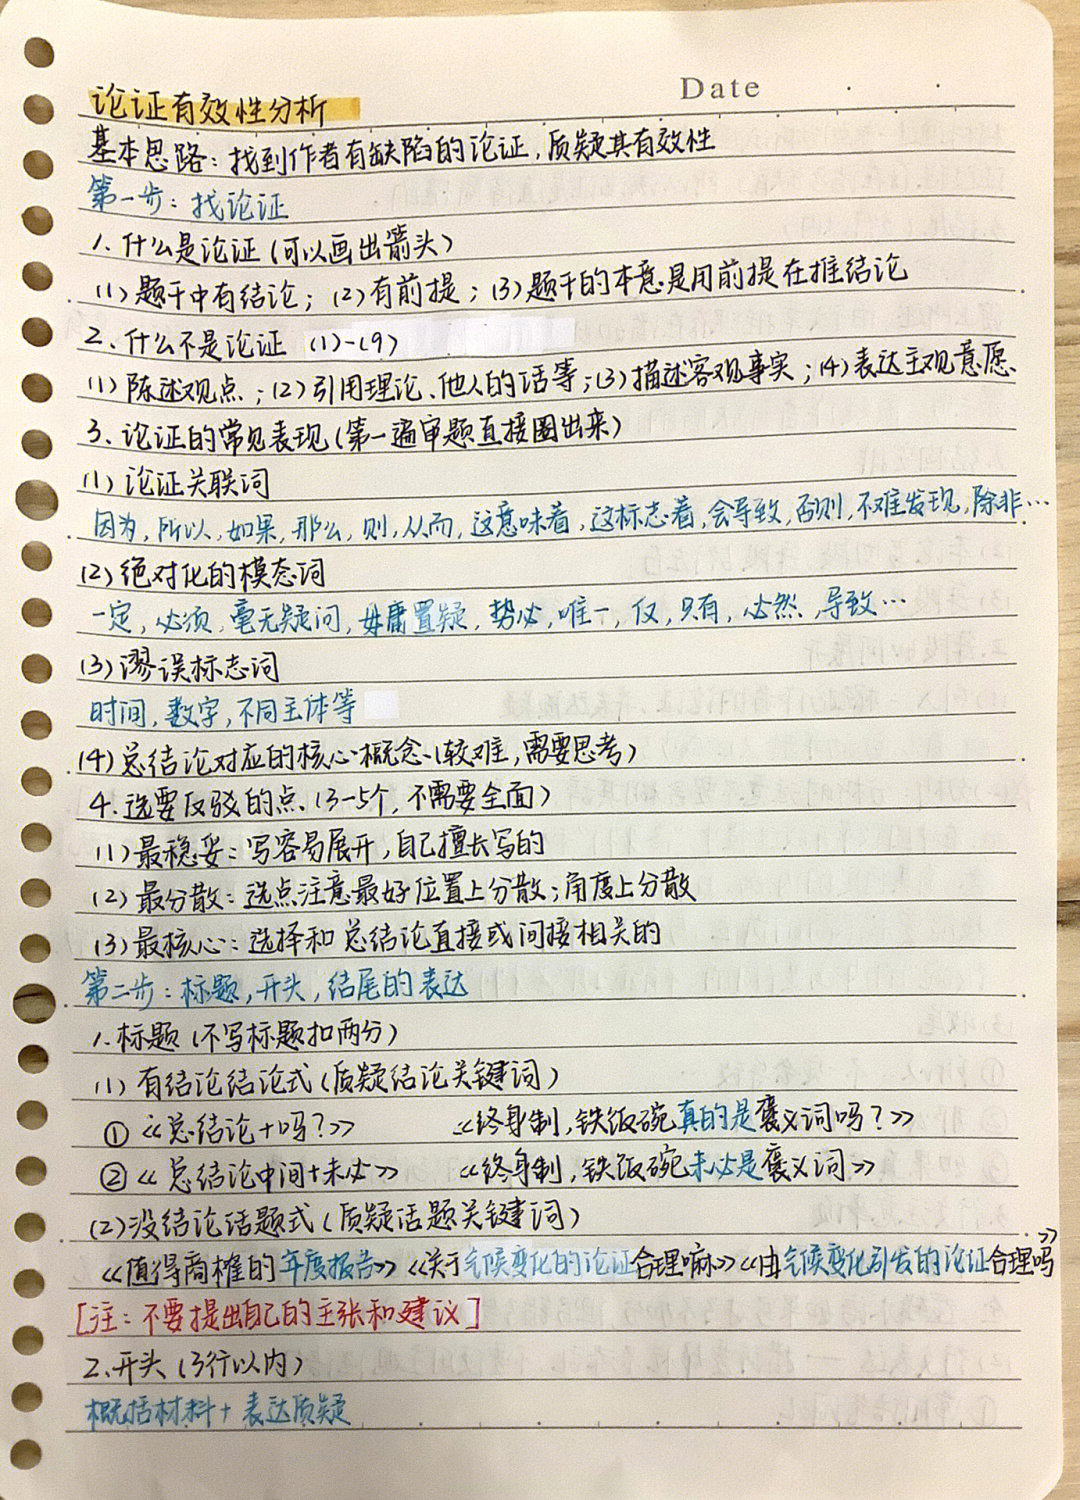 Date
论证有效性分析
基本思路：找到作者有缺陷的论证，质疑其有效性
第一步：找论证
1.什么是论证（可以画出箭头）
(1)题干中有结论；(2)有前提；(3)题干的本意是用前提在推结论
2.什么不是论证 (1)-(9)
(1)陈述观点；(2)引用理论、他人的话等；(3)描述客观事实；(4)表达主观意愿
3.论证的常见表现（第一遍审题直接圈出来）
(1)论证关联词
因为，所以，如果，那么，则，从而，这意味着，这标志着，会导致，否则，不难发现，除非…
(2)绝对化的模态词
一定，必须，毫无疑问，毋庸置疑，势必，唯一，仅，只有，必然，导致…
(3)谬误标志词
时间，数字，不同主体等
(4)总结论对应的核心概念（较难，需要思考）
4.选要反驳的点（3-5个，不需要全面）
(1)最稳妥：写容易展开，自己擅长写的
(2)最分散：选点注意最好位置上分散；角度上分散
(3)最核心：选择和总结论直接或间接相关的
第二步：标题，开头，结尾的表达
1.标题（不写标题扣两分）
(1)有结论结论式（质疑结论关键词）
①《总结论+吗？》 《终身制，铁饭碗真的是褒义词吗？》
②《总结论中间+未必》 《终身制，铁饭碗未必是褒义词》
(2)没结论话题式（质疑话题关键词）
《值得商榷的年度报告》《关于气候变化的论证合理嘛》《由气候变化引发的论证合理吗》
[注：不要提出自己的主张和建议]
2.开头（3行以内）
概括材料+表达质疑